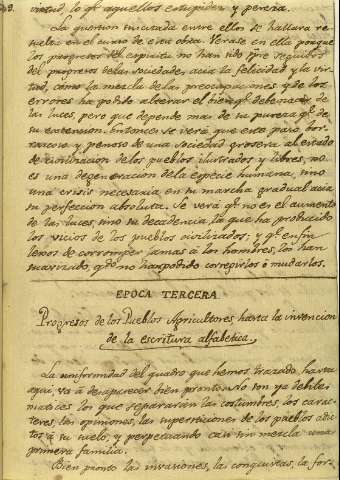 virtud, lo qᵉ. aquellos estupidez y pereza.
La question suscitada entre ellos se hallara re
suelta en el curso de esta obra. Verase en ella porque
los progresos del espiritu no han sido siempre seguidos
del progreso de las sociedades, acia la felicidad y la vir-
tud, como la mezcla de las preocupaciones y de los
errores ha podido alterar el bien qᵉ. debe nacer de
las luces, pero que depende mas de su pureza qᵉ. de
su extension. Entonces se verá que este paso bor-
rascoso y penoso de una sociedad grosera al estado
de civilizacion de los pueblos ilustrados y libres, no
es una degeneracion de la especie humana, sino
una crisis necesaria en su marcha gradual acia
su perfeccion absoluta. Se verá qᵉ. no es el aumento
de las luces, sino su decadencia, la que ha producido
los vicios de los pueblos civilizados; y qᵉ. en fin
lexos de corromper jamas á los hombres, los han
suavizado, qᵈᵒ. no han podido corregirlos ó mudarlos.
EPOCA TERCERA
Progresos de los Pueblos Agricultores, hasta la invencion
de la escritura alfabetica.
La uniformidad del quadro que hemos trazado hasta
aqui, va á desaparecer bien pronto. No son ya debiles
matices los que separarán las costumbres, los carac-
teres, las opiniones, las supersticiones de los pueblos adic-
tos á su suelo, y perpetuando casi sin mezcla una
primera familia.
Bien pronto las invasiones, las conquistas, la for-